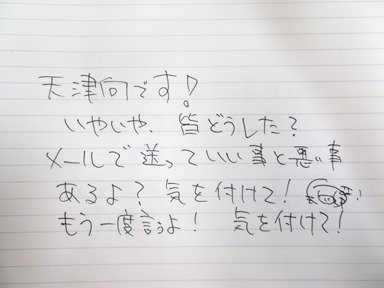 天津向です!
いやいや、皆どうした?
メールで送っていい事と悪い事
あるよ?気を付けて!
もう一度言うよ! 気を付けて!